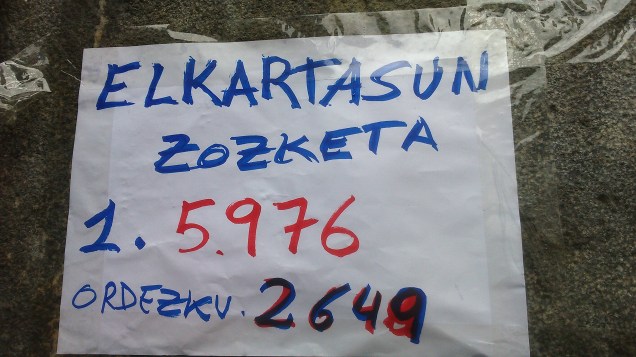 ELKARTASUN
ZOZKETA
1. 5.976
ORDEZKU. 2649